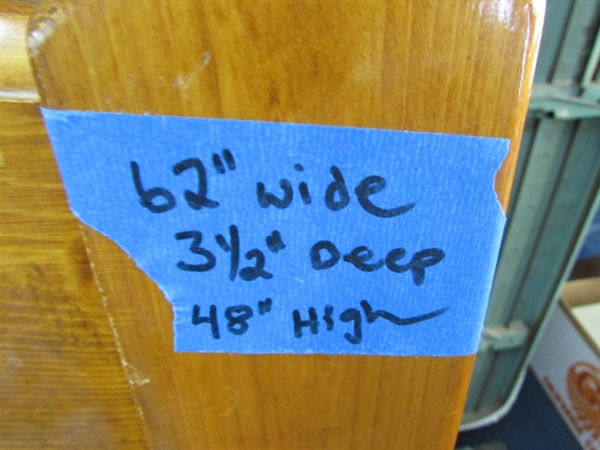 62" wide
3½" Deep
48" High